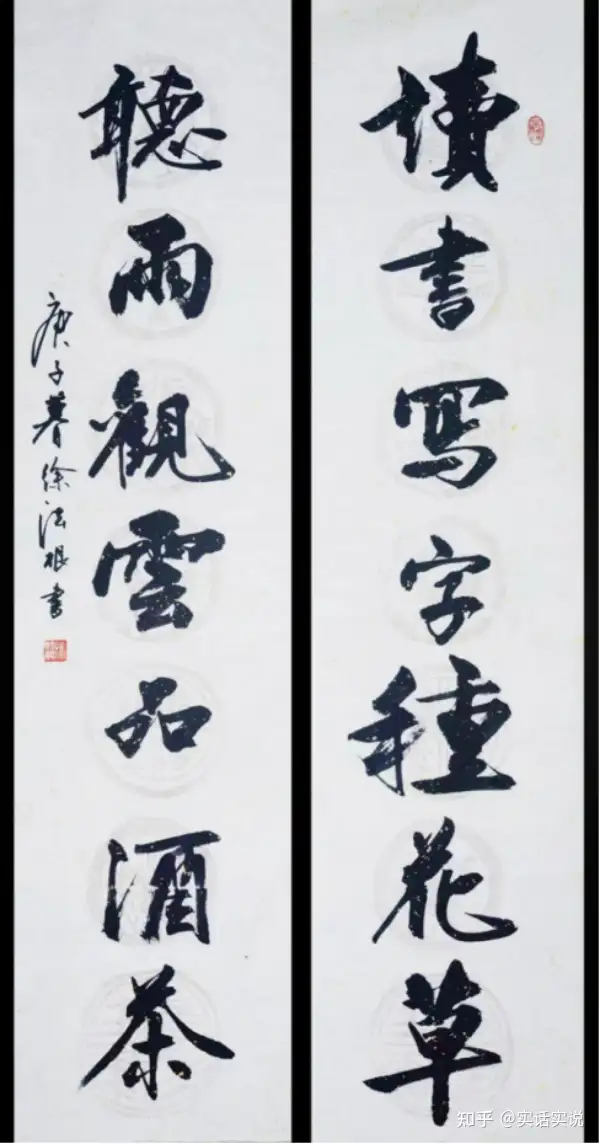 讀書寫字種花草
聽雨觀雲品酒茶
庚子暮徐法根書
知乎 @实话实说